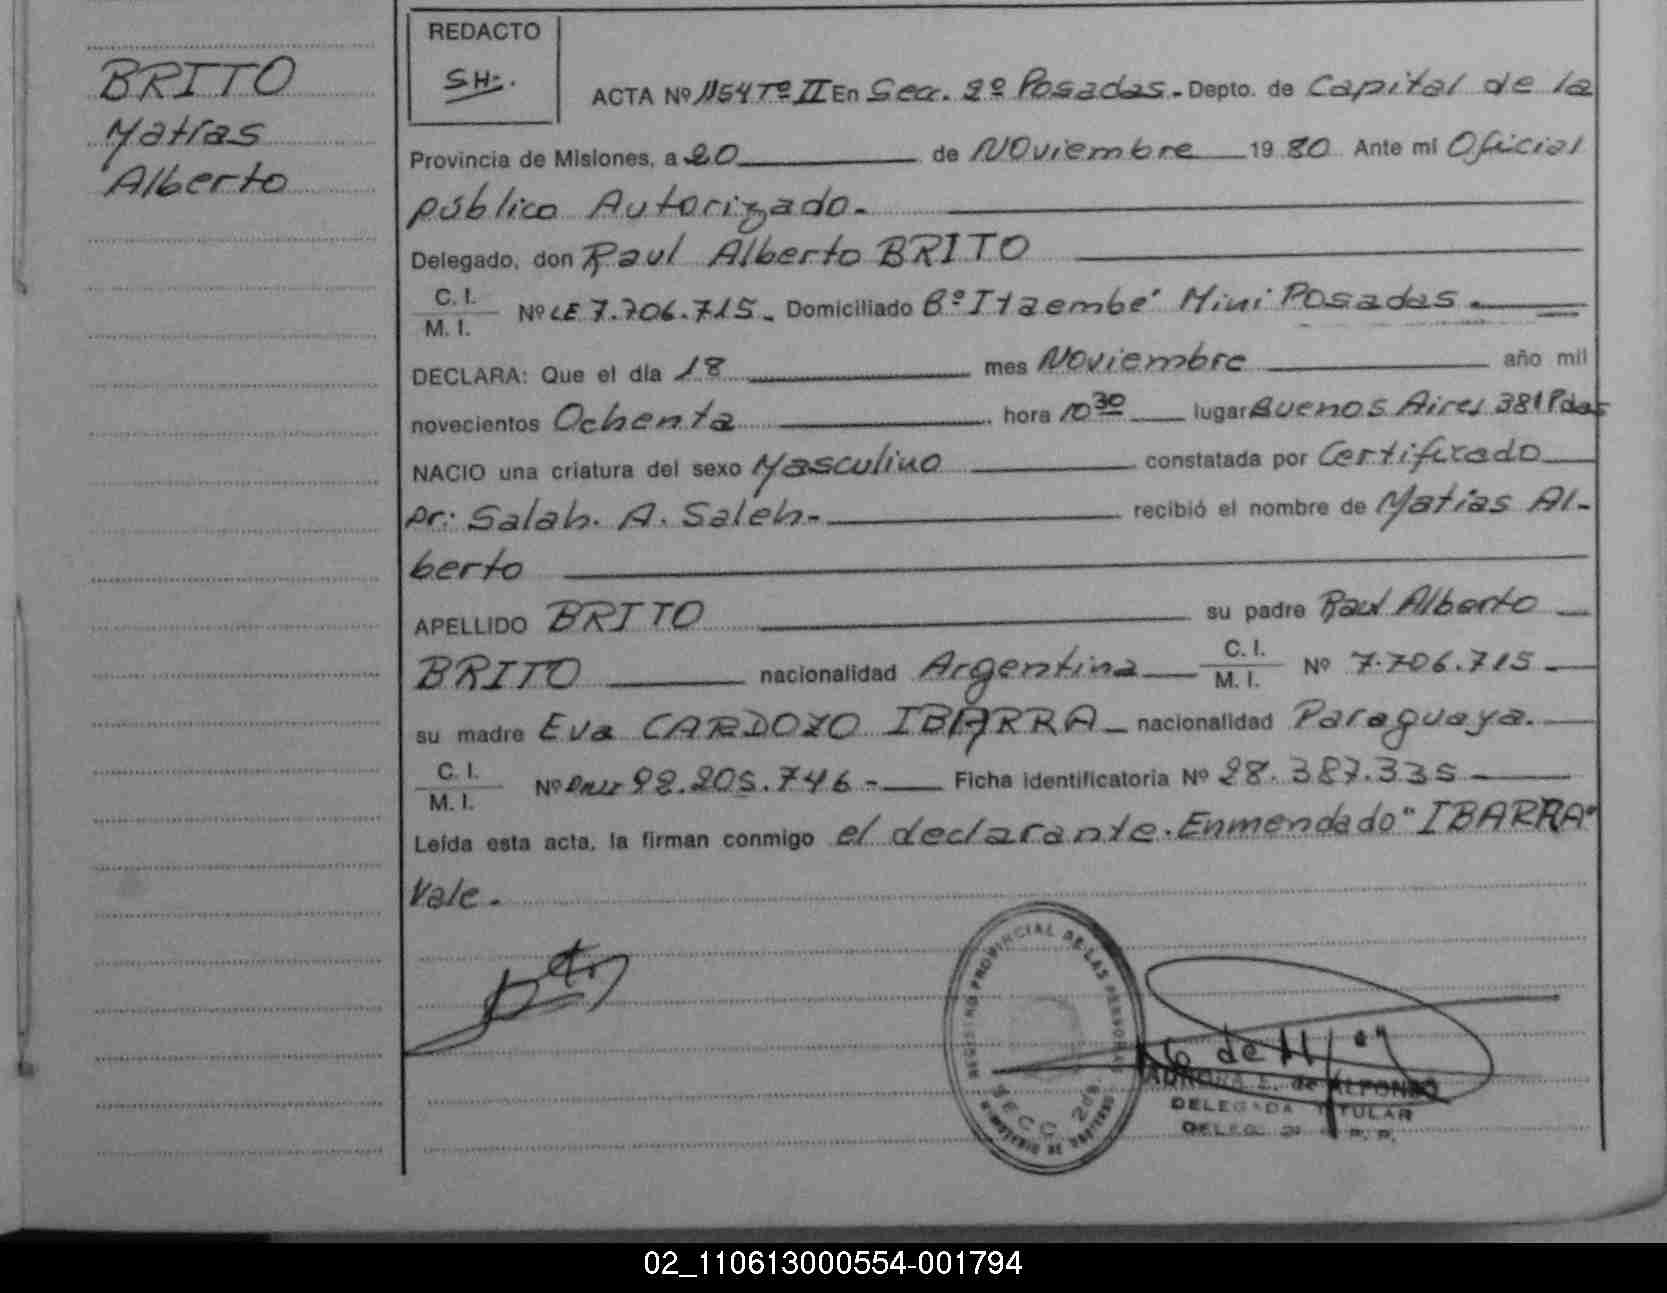 BRITO
Matías
Alberto
REDACTO
SH-.
ACTA Nº 1154 Tº II En Secc. 2º Posadas.- Depto. de Capital de la
Provincia de Misiones, a 20 de Noviembre 19 80 Ante mi Oficial
público Autorizado.
Delegado, don Raul Alberto BRITO
C. I.
M. I.
Nº LE 7.706.715. Domiciliado Bº Itaembé Mini Posadas.
DECLARA: Que el día 18 mes Noviembre año mil
novecientos Ochenta hora 10 30 lugar Buenos Aires 381 Pdas
NACIO una criatura del sexo Masculino constatada por Certificado
Dr: Salah. A. Saleh- recibió el nombre de Matías Al-
berto
APELLIDO BRITO su padre Raul Alberto
BRITO nacionalidad Argentina C. I.
M. I.
Nº 7.706.715
su madre Eva CARDOZO IBARRA nacionalidad Paraguaya.
C. I.
M. I.
Nº 92.205.746- Ficha identificatoria Nº 28.387.335
Leída esta acta, la firman conmigo el declarante. Enmendado "IBARRA"
Vale.
REGISTRO PROVINCIAL DE LAS PERSONAS
SECC. 2da.
AURORA E. de ALFONSO
DELEGADA TITULAR
02_110613000554-001794